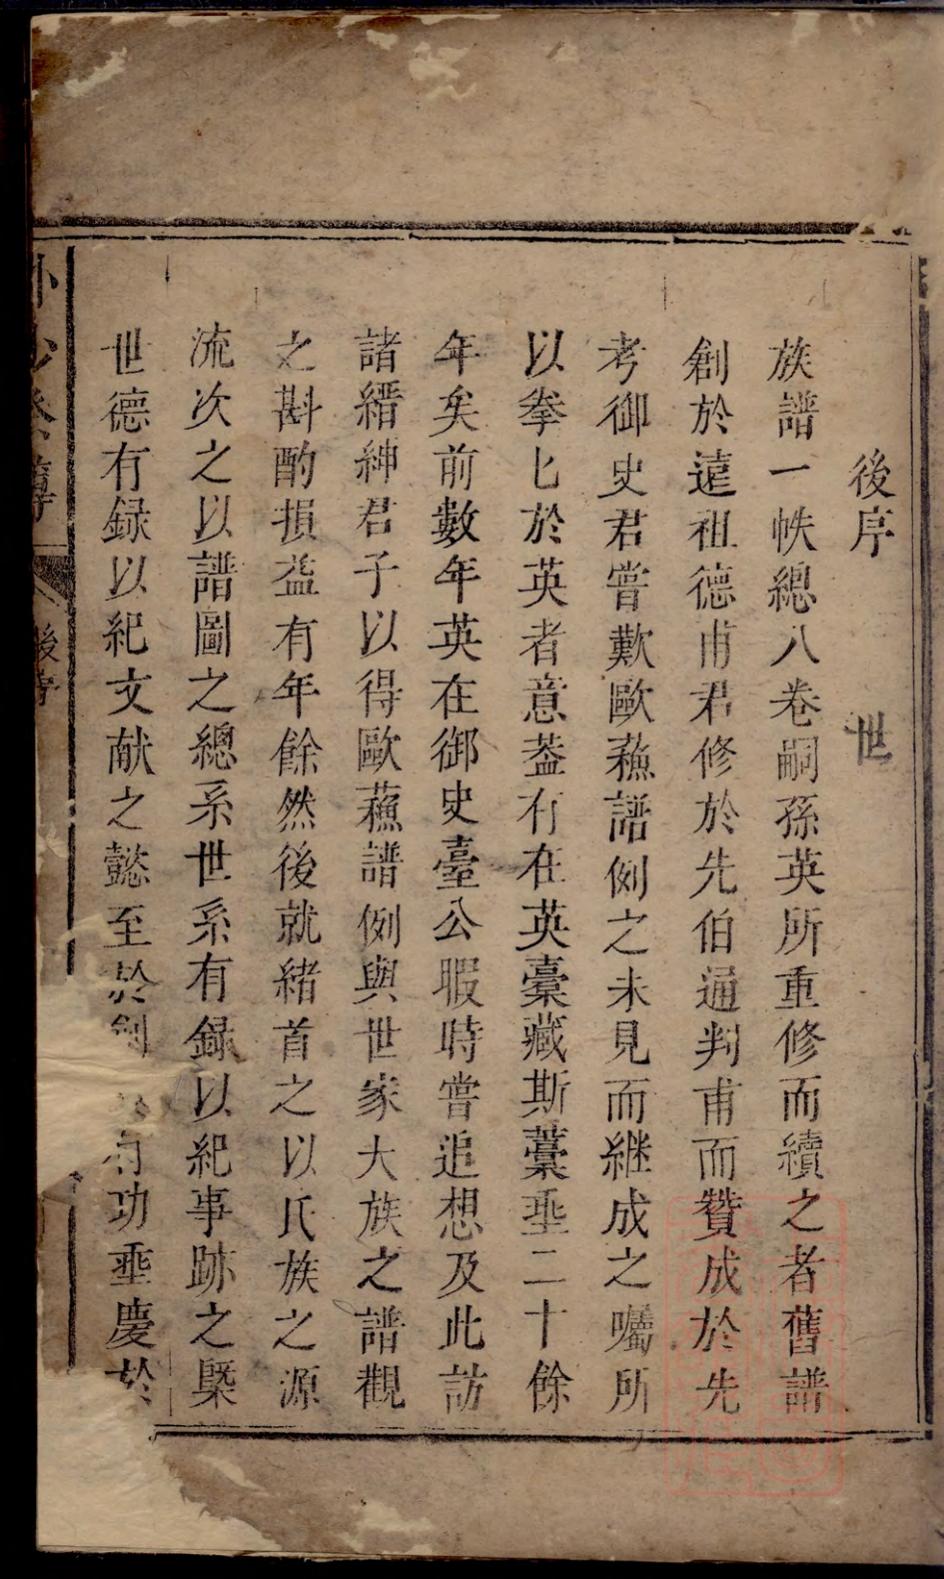 後序
世
族譜一帙總八卷嗣孫英所重修而續之者舊譜
創於遠祖德甫君修於先伯通判甫而贊成於先
考御史君嘗歎歐蘓譜例之未見而継成之囑所
以拳匕於英者意葢有在英藳藏斯藳垂二十餘
年矣前數年英在御史臺公暇時嘗追想及此訪
諸縉紳君子以得歐蘓譜例與世家大族之譜觀
之斟酌損益有年餘然後就緒首之以氏族之源
流次之以譜圖之總系世系有録以紀事跡之槩
世德有録以紀文献之懿至於創有功垂慶於
後序